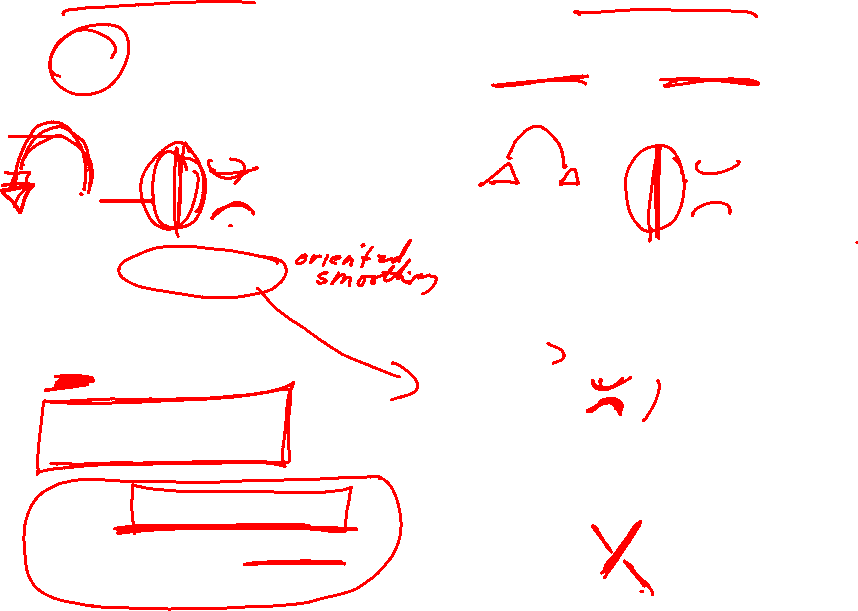 oriented
smoothing